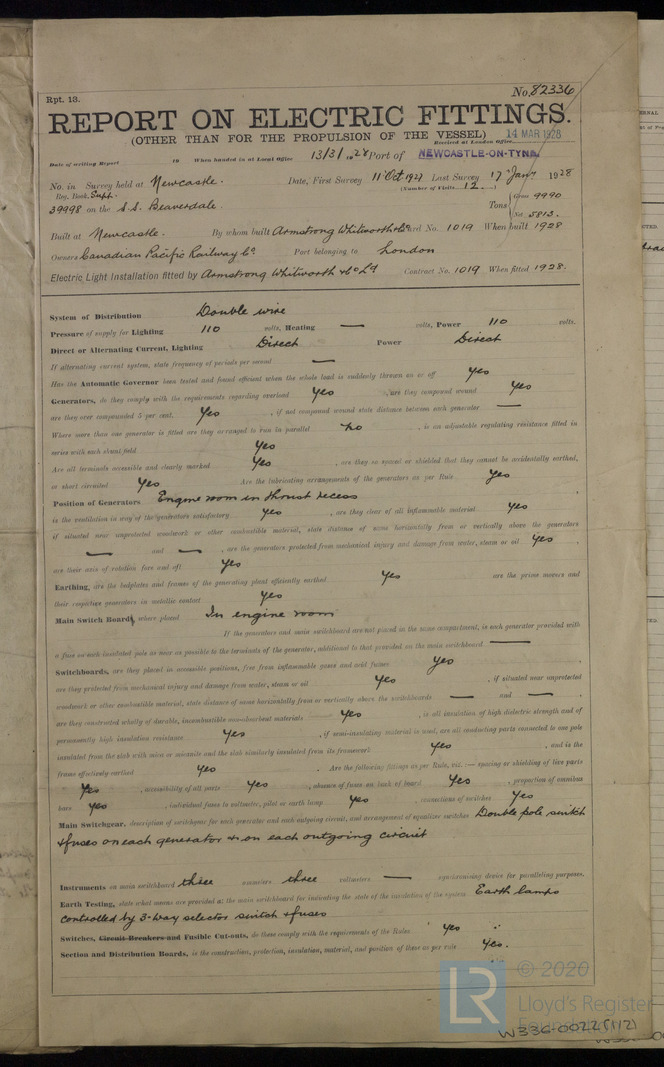 Rpt. 13.
No. 82336
REPORT ON ELECTRIC FITTINGS.
(OTHER THAN FOR THE PROPULSION OF THE VESSEL)
Received at London Office 14 MAR 1928
Date of writing Report 19 When handed in at Local Office 13/3/1928 Port of NEWCASTLE-ON-TYNE
No. in Survey held at Newcastle. Date, First Survey 11 Oct 1927 Last Survey 17 Jany 1928
Reg. Book. Supt. (Number of Visits 12)
39998 on the S.S. Beaverdale. Tons Gross 9990
Net 5813.
Built at Newcastle. By whom built Armstrong Whitworth & Co Yard No. 1019 When built 1928
Owners Canadian Pacific Railway Co. Port belonging to London
Electric Light Installation fitted by Armstrong Whitworth & Co Ld Contract No. 1019 When fitted 1928.
System of Distribution Double wire
Pressure of supply for Lighting 110 volts, Heating — volts, Power 110 volts.
Direct or Alternating Current, Lighting Direct Power Direct
If alternating current system, state frequency of periods per second —
Has the Automatic Governor been tested and found efficient when the whole load is suddenly thrown on or off yes
Generators, do they comply with the requirements regarding overload yes, are they compound wound yes
are they over compounded 5 per cent. yes, if not compound wound state distance between each generator —
Where more than one generator is fitted are they arranged to run in parallel no, is an adjustable regulating resistance fitted in
series with each shunt field yes
Are all terminals accessible and clearly marked yes, are they so spaced or shielded that they cannot be accidentally earthed,
or short circuited yes Are the lubricating arrangements of the generators as per Rule yes
Position of Generators Engine room in thrust recess
is the ventilation in way of the generators satisfactory yes, are they clear of all inflammable material yes
if situated near unprotected woodwork or other combustible material, state distance of same horizontally from or vertically above the generators
— and —, are the generators protected from mechanical injury and damage from water, steam or oil yes,
are their axis of rotation fore and aft yes
Earthing, are the bedplates and frames of the generating plant efficiently earthed yes are the prime movers and
their respective generators in metallic contact yes
Main Switch Boards, where placed In engine room
If the generators and main switchboard are not placed in the same compartment, is each generator provided with
a fuse on each insulated pole as near as possible to the terminals of the generator, additional to that provided on the main switchboard —
Switchboards, are they placed in accessible positions, free from inflammable gases and acid fumes yes,
are they protected from mechanical injury and damage from water, steam or oil yes, if situated near unprotected
woodwork or other combustible material, state distance of same horizontally from or vertically above the switchboards — and —,
are they constructed wholly of durable, incombustible non-absorbent materials yes, is all insulation of high dielectric strength and of
permanently high insulation resistance yes, if semi-insulating material is used, are all conducting parts connected to one pole
insulated from the slab with mica or micanite and the slab similarly insulated from its framework yes, and is the
frame effectively earthed yes. Are the following fittings as per Rule, viz.:— spacing or shielding of live parts
yes, accessibility of all parts yes, absence of fuses on back of board yes, proportion of omnibus
bars yes, individual fuses to voltmeter, pilot or earth lamp yes, connections of switches yes
Main Switchgear, description of switchgear for each generator and each outgoing circuit, and arrangement of equalizer switches Double pole switch
& fuses on each generator & on each outgoing circuit
Instruments on main switchboard three ammeters three voltmeters — synchronising device for paralleling purposes.
Earth Testing, state what means are provided at the main switchboard for indicating the state of the insulation of the system Earth lamps
controlled by 3-way selector switch & fuses
Switches, Circuit Breakers and Fusible Cut-outs, do these comply with the requirements of the Rules yes
Section and Distribution Boards, is the construction, protection, insulation, material, and position of these as per rule yes.
© 2020
Lloyd's Register
Foundation
W336-0022 (1/2)